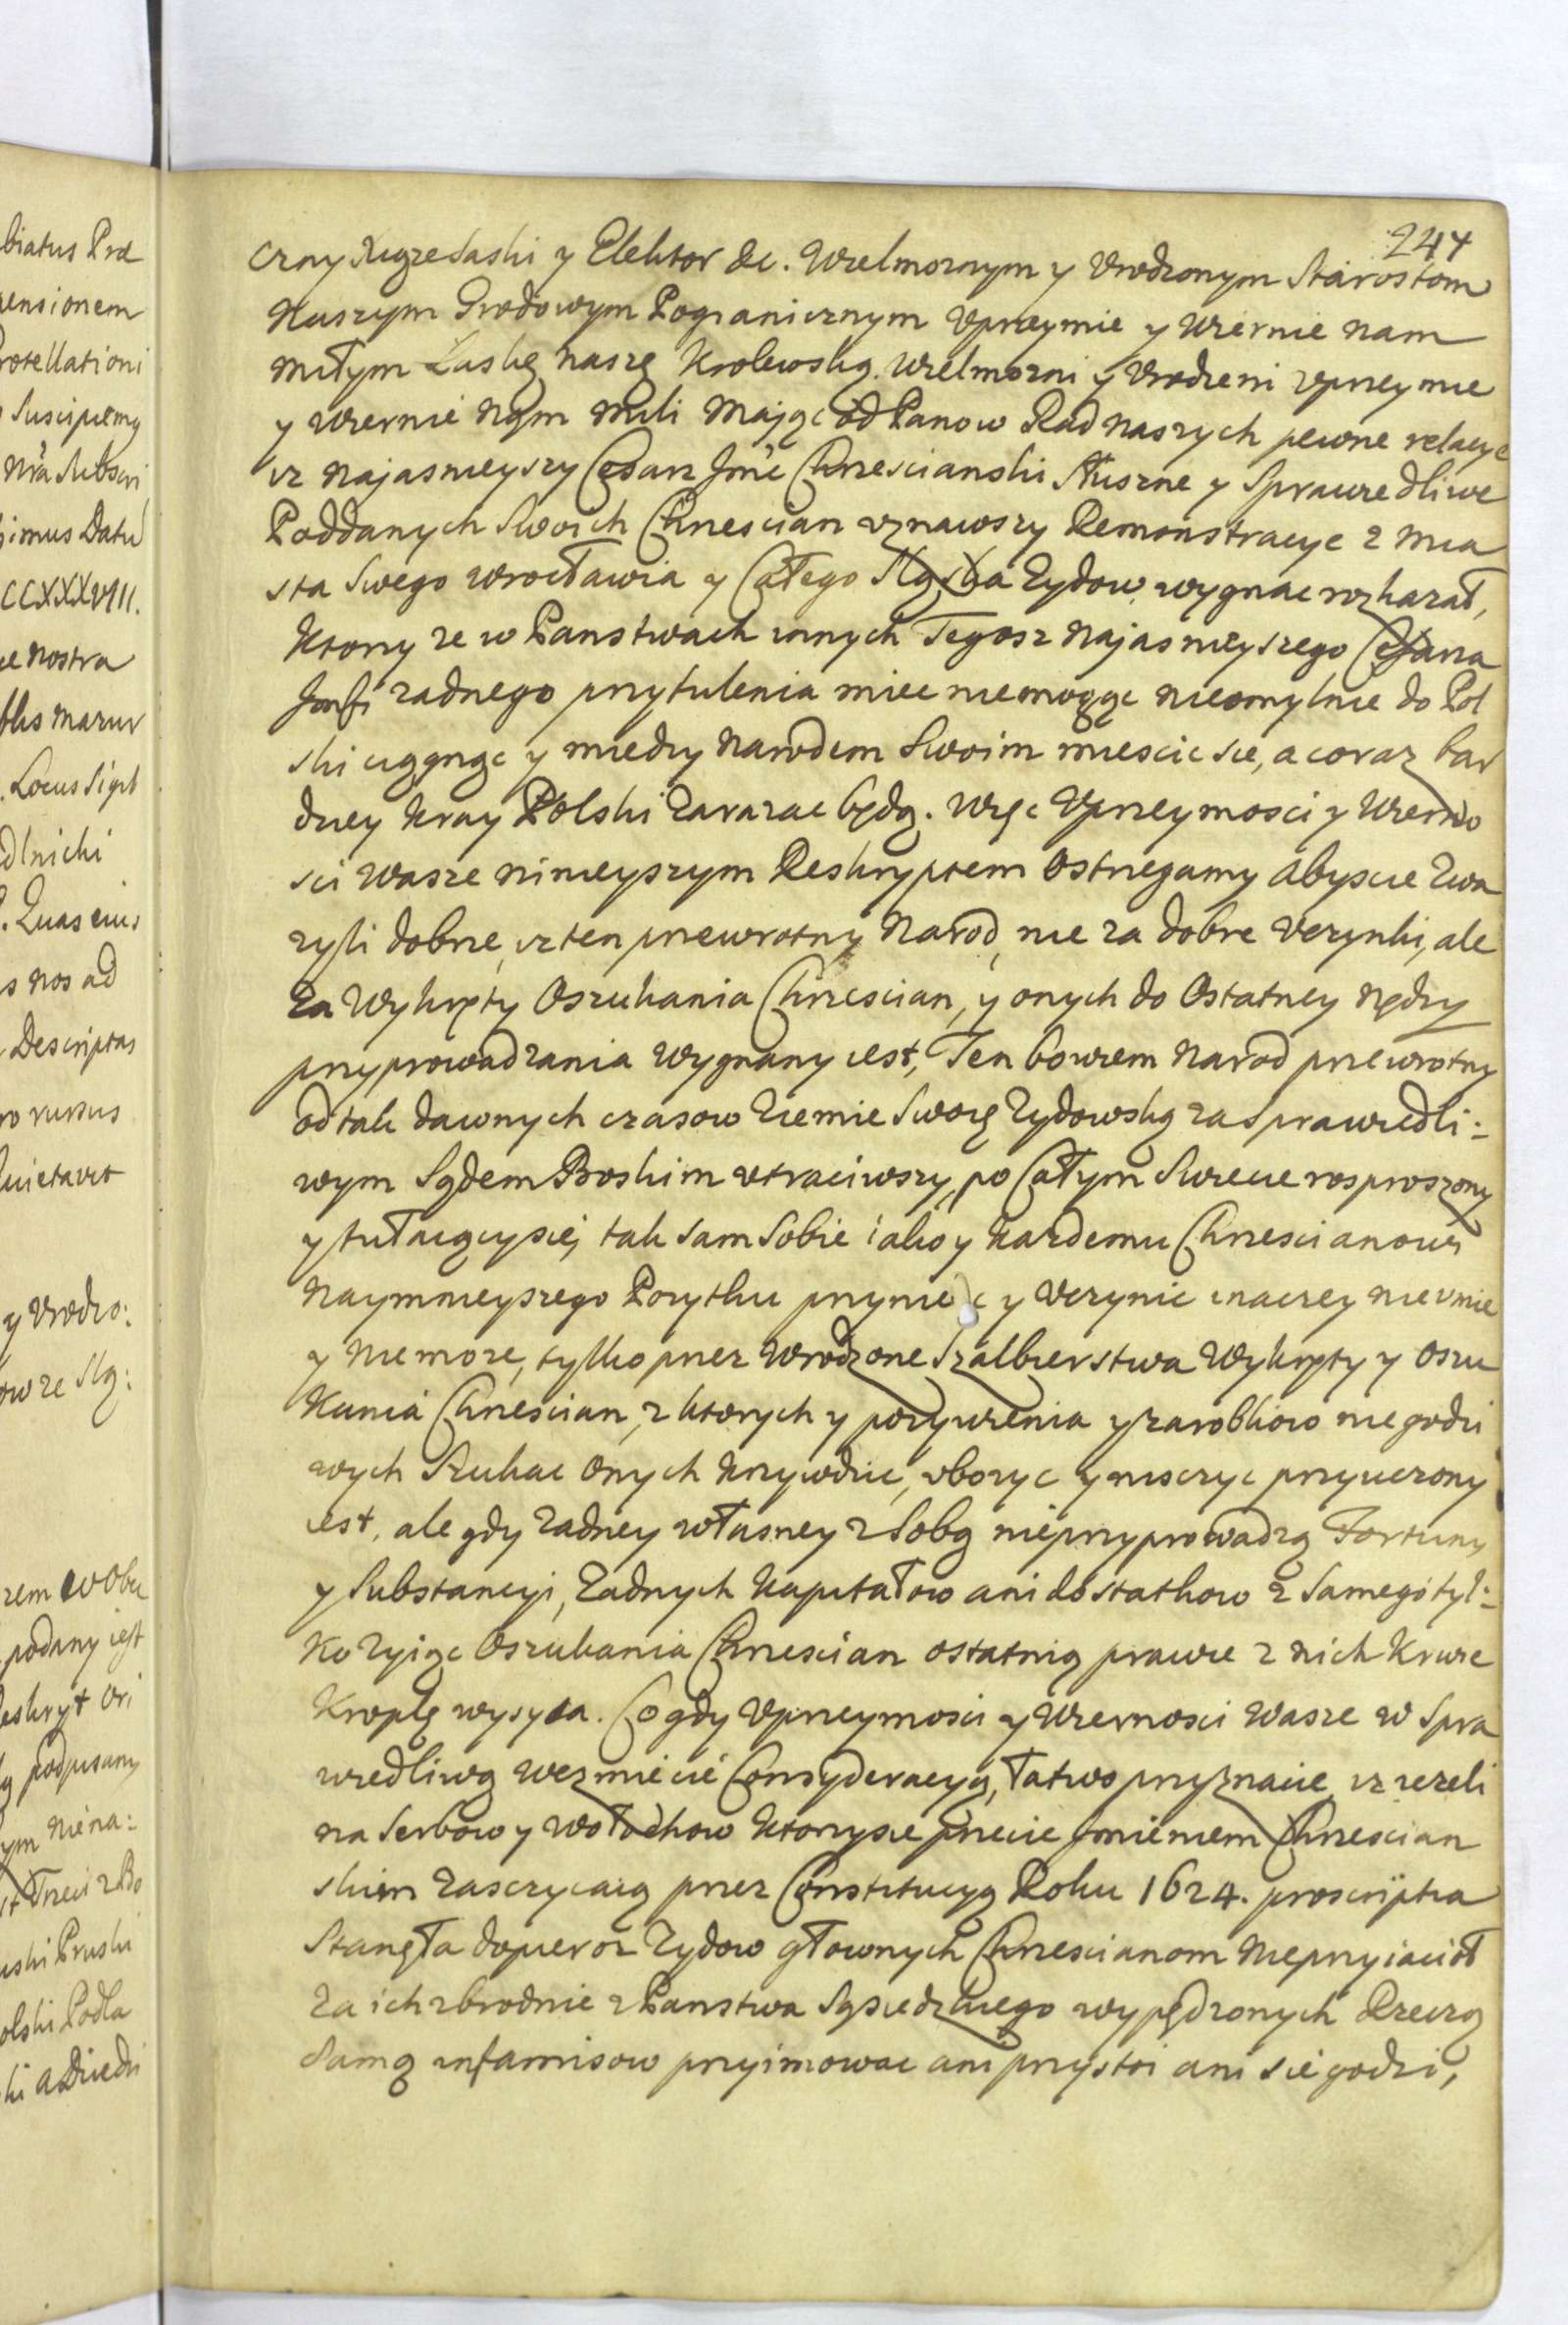 247
czny Xiąze Saski y Elektor &c. Wielmoznym y Vrodzonym Starostom
Naszym Grodowym Pogranicznym Vprzeymie y Wiernie nam
miłym Łaskę naszę Krolewską. Wielmozni y Vrodzeni vprzeymie
y Wiernie Nam mili Maiąc od Panow Rad naszych pewne relacye
iz Najasnieyszy Cesarz Jmć Chrzescianski Słuszne y Sprawiedliwe
Poddanych Swoich Chrzescian vznawszy Remonstracye z mia
sta Swego Wrocławia y Całego Sląska Zydow wygnac rozkazał,
Ktorzy ze w Panstwach innych Tegosz Najasnieyszego Cesarza
Jmsci zadnego przytulenia miec niemogąc nieomylnie do Pol
ski ciągnąc y miedzy Narodem Swoim miescic sie, a coraz bar
dziey Kray Polski Zarazac będą. Więc Vprzeymosci y Wierno
sci Wasze ninieyszym Reskryptem Ostrzegamy Abyscie Zwa
zyli dobrze, iz ten przewrotny Narod, nie za dobre Vczynki, ale
Za Wykręty Oszukania Chrzescian, y onych do Ostatney nędzy
przyprowadzania Wygnany iest, Ten bowiem Narod przewrotny
od tak dawnych czasow Ziemie Swoię Zydowską za Sprawiedli:
wym Sądem Boskim vtraciwszy, po Całym Swiecie rosproszony
y tułaiący sie, tak sam Sobie iako y Kazdemu Chrzescianowi
Naymnieyszego Pozytku przynieść y Vczynic inaczey nie vmie
y Niemoze, tylko przez Wrodzone Szalbierstwa Wykręty y Oszu
Kania Chrzescian, z ktorych y pozywienia y zarobkow niegodzi
wych Szukac Onych Krzywdzic, vbozyc y niszczyc przyuczony
iest, ale gdy Zadney własney z Sobą nieprzyprowadzą Fortuny
y Substancyi, Zadnych Kapitałow ani dostatkow z Samego tyl:
Ko Zyiąc Oszukania Chrzescian ostatnią prawie z nich Krwie
Kroplę wysysa. Co gdy Vprzeymosci y Wiernosci Wasze w Spra
wiedliwą wezmiecie Consyderacyą, łatwo przyznacie iz iezeli
na Serbow y Wołochow Ktorzy sie przecie Jmieniem Chrzescian
skim Zaszczycaią przez Constitucyą Roku 1624. proscripcia
Stanęła dopieroz Zydow głownych Chrzescianom Nieprzyiacioł
Za ich zbrodnie z Panstwa Sąsiedzkiego wypędzonych Rzeczą
Samą infamisow przyimowac ani przystoi ani sie godzi,